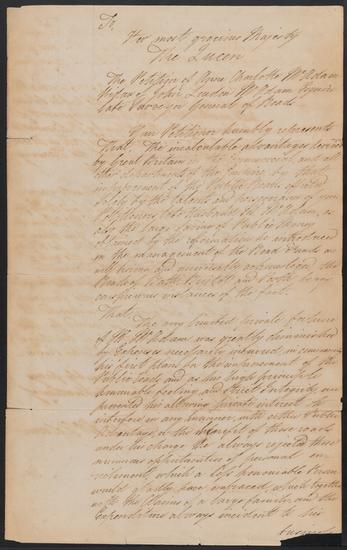 To
Her most gracious Majesty
The Queen
The Petition of Anne Charlotte McAdam
Widow of John Loudon McAdam Esquire
late Surveyor General of Roads
Your Petitioner humbly represents
That, The incalculable advantages derived
by Great Britain in the Commercial and all
other departments of the Empire by the
improvement of the Public Roads effected
solely by the talents and perseverance of your
Petitioners late Husband Mr McAdam, as
also the large saving of Public Money
obtained by the reformation he introduced
in the management of the Road Funds are
well known and universally acknowledged the
Roads of Bath Bristol and being
conspicuous instances of the fact.
That
The very limited private fortune
of Mr McAdam was greatly diminished
by Expenses necessarily incurred in
his first plans for the improvement of the
Public Roads and as his high principle
honourable feeling and strict Integrity
prevented his allowing private interest to
interfere in any manner, with either Public
advantage, or the benefit of those roads
under his charge he always rejected those
numerous opportunities of personal
which a less honourable Person
would gladly have embraced, which together
with the Claims of a large family and the
Expenditure always incident to his